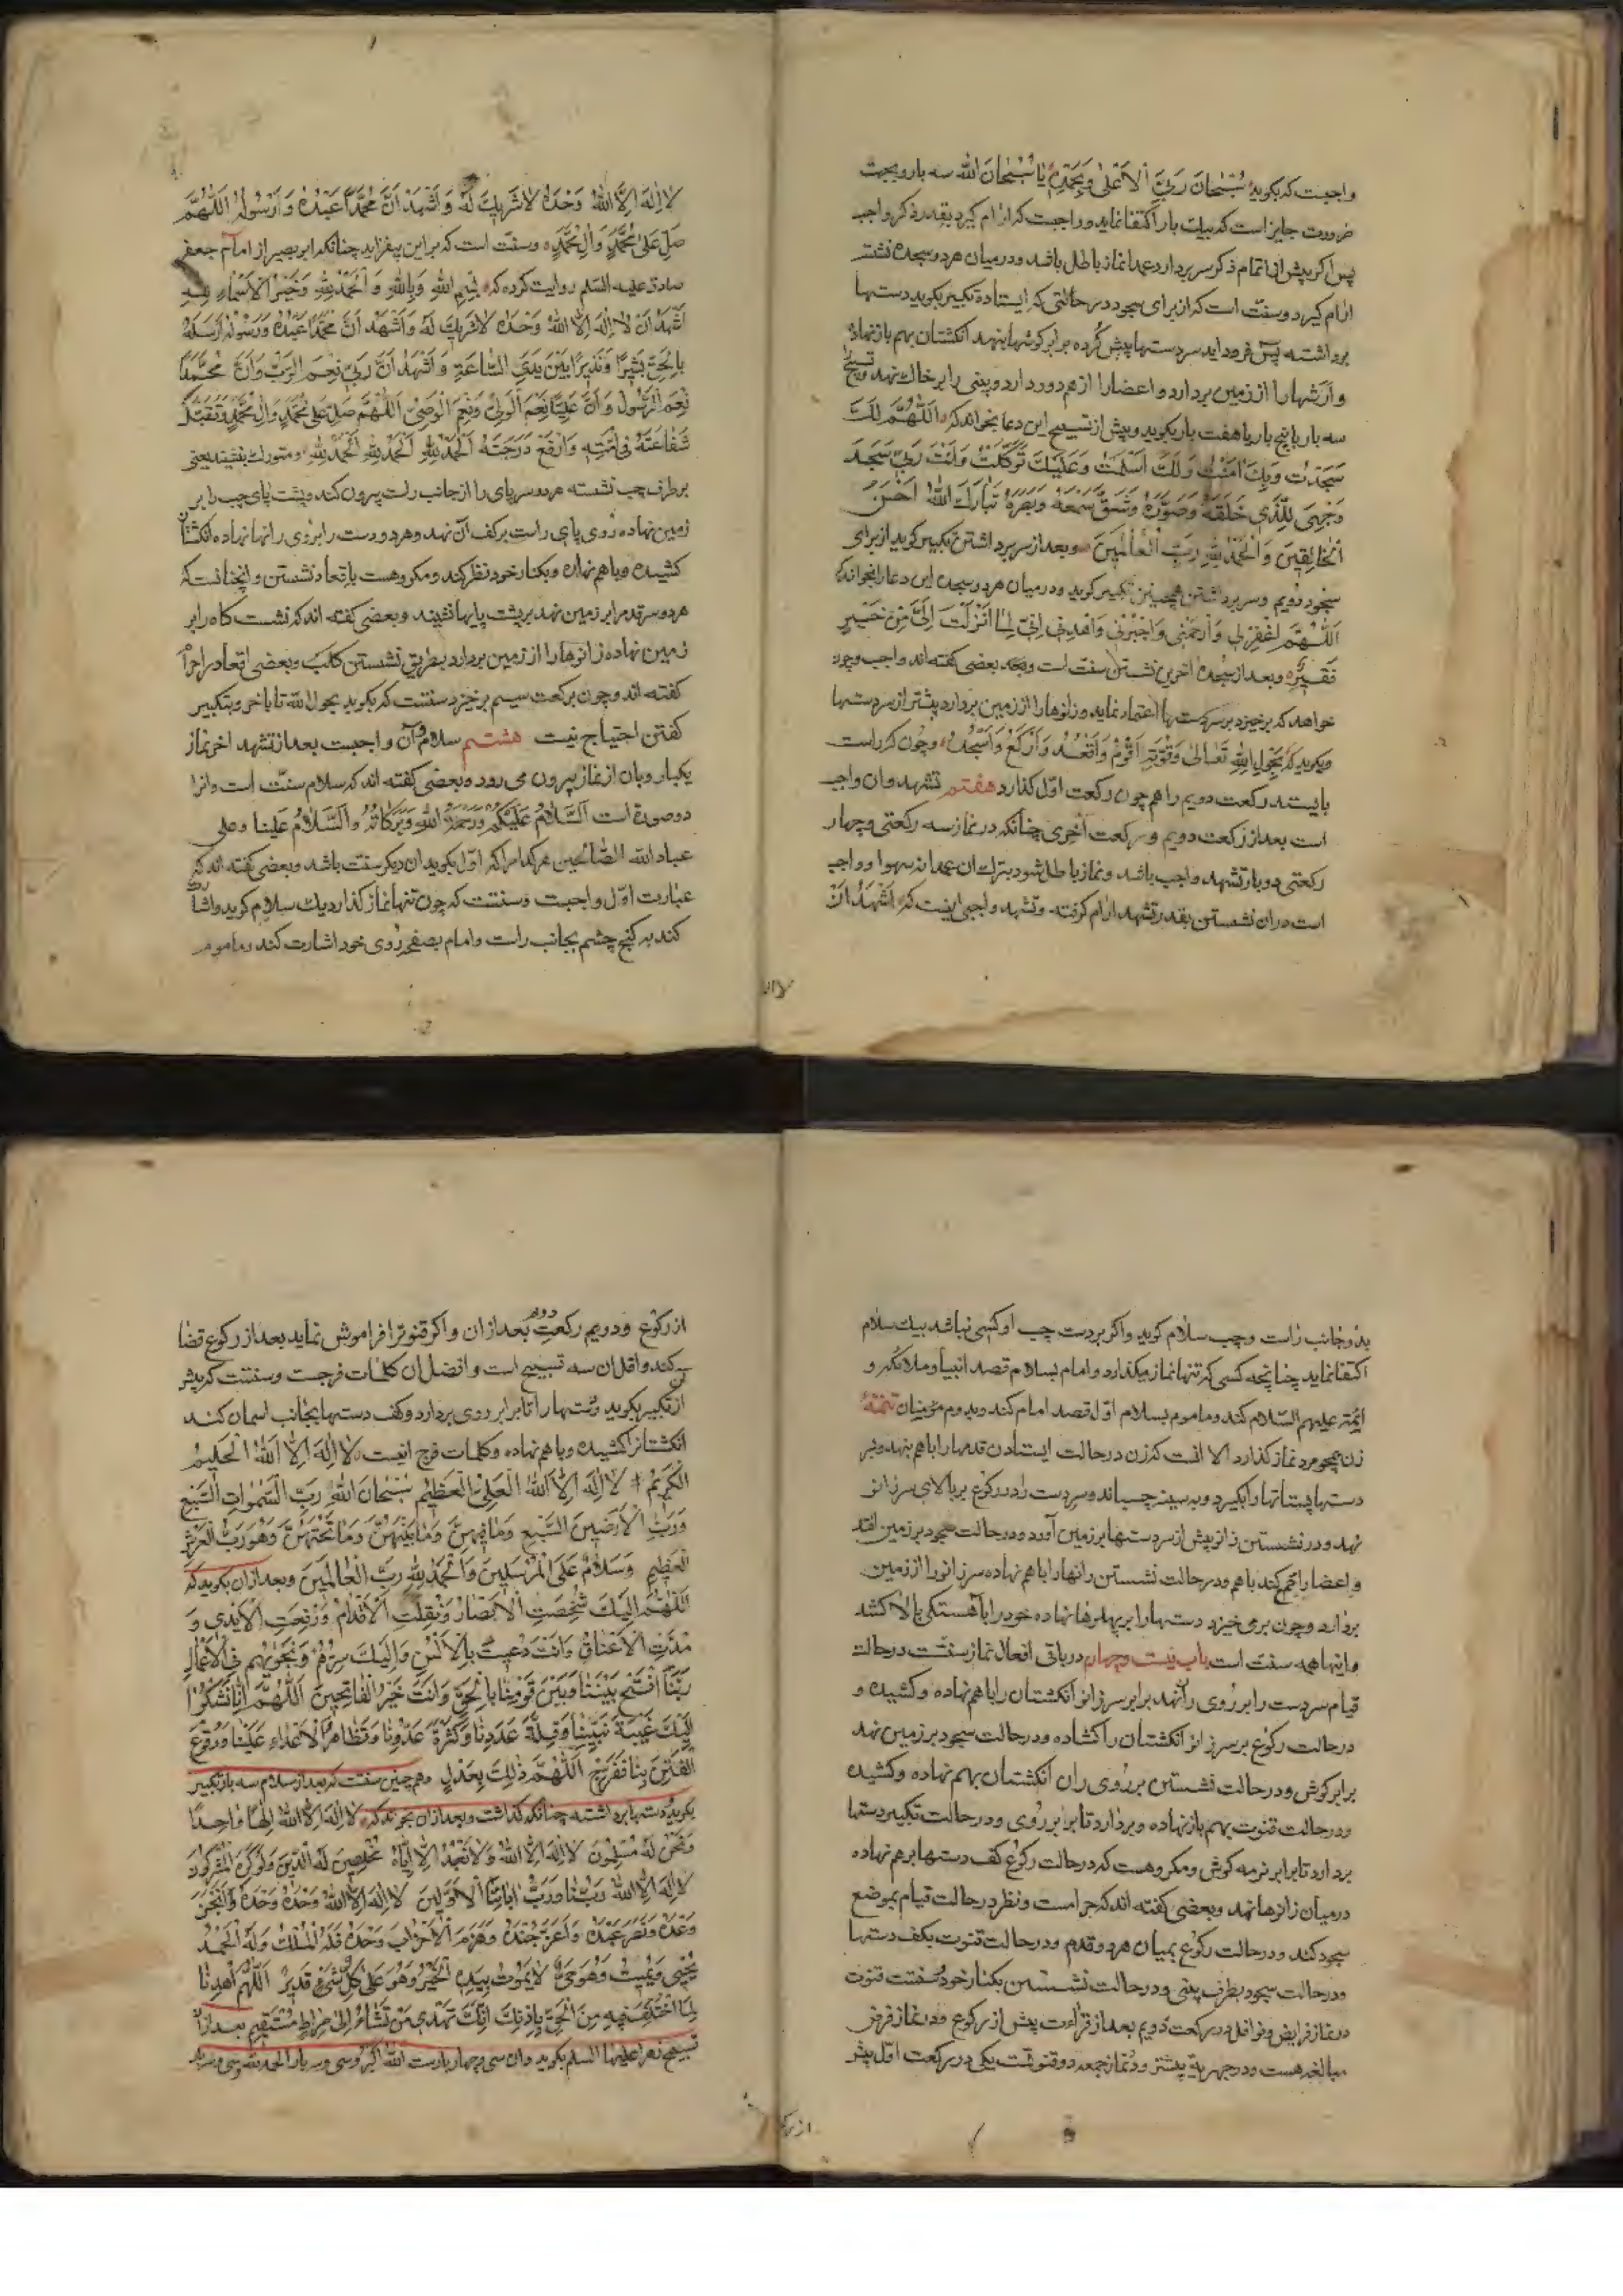 واجبست که بکوید سُبْحانَ رَبِّیَ الاَعْلیٰ وَبِحَمْدِهِ یٰا سُبْحٰانَ اللّٰه سه بار و بجهت
ضرورت جایز است که بیک بار اکتفا نماید و واجبست که ارام کیرد بقدر ذکر واجب
پس اکر پیش از اتمام ذکر سر بردارد عمدا نماز باطل باشد و در میان هر دو سجده نشسته
ارام کیرد و سنّت است که از برای سجود در حالتی که ایستاده تکبیر بکوید دستها
برداشته پس فرود اید سر دستها پیش کرده برابر کوشها بنهد انکشتان بهم باز نهاده
و ارشها را از زمین بردارد و اعضا را از هم دور دارد و بینی را بر خاک نهد و تسبیح
سه بار یا پنج بار یا هفت بار بکوید و پیش از تسبیح این دعا بخواند که اَللّٰهُمَّ لَکَ
سَجَدْتُ وَبِکَ اٰمَنْتُ وَلَکَ اَسْلَمْتُ وَعَلَیْکَ تَوَکَّلْتُ وَاَنْتَ رَبّی سَجَدَ
وَجْهِیَ لِلَّذی خَلَقَهُ وَصَوَّرَهُ وَشَقَّ سَمْعَهُ وَبَصَرَهُ تَبٰارَکَ اللّٰهُ اَحْسَنُ
الْخٰالِقینَ وَالْحَمْدُ لِلّٰهِ رَبِّ الْعٰالَمینَ و بعد از سر برداشتن تکبیر کوید از برای
سجود دویم و سر برداشتن همچنین تکبیر کوید و در میان هر دو سجده این دعا را بخواند که
اَللّٰهُمَّ اغْفِرْلی وَارْحَمْنی وَاجْبُرْنی وَاهْدِنی اِنّی لِمٰا اَنْزَلْتَ اِلَیَّ مِنْ خَیْرٍ
فَقیرٌ و بعد از سجده اخرین نشستن سنت است و بعضی کفته اند واجب و چون
خواهد که برخیزد بر سر دستها اعتماد نماید و زانوها را از زمین بردارد پیشتر از سر دستها
و بکوید که بِحَوْلِ اللّٰهِ تَعٰالیٰ وَقُوَّتِهِ اَقُومُ وَاَقْعُدُ وَاَرْکَعُ وَاَسْجُدُ و چون که راست
بایستد رکعت دویم را هم چون رکعت اوّل کذارد هفتم تشهد و ان واجب
است بعد از رکعت دویم و رکعت اخری چنانکه در نماز سه رکعتی و چهار
رکعتی دو بار تشهد واجب باشد و نماز باطل شود بترک ان عمدا نه سهوا و واجب
است در ان نشستن بقدر تشهد ارام کرفته و تشهد واجبی اینست که اَشْهَدُ اَنْ
لاالٰه
لا اِلٰهَ اِلَّا اللّٰهُ وَحْدَهُ لا شَریکَ لَهُ وَاَشْهَدُ اَنَّ مُحَمَّداً عَبْدُهُ وَرَسُولُهُ اَللّٰهُمَّ
صَلِّ عَلیٰ مُحَمَّدٍ وَاٰلِ مُحَمَّدٍ و سنّت است که بر این بیفزاید چنانکه ابو بصیر از امام جعفر
صادق علیه السّلم روایت کرده که بِسْمِ اللّٰهِ وَبِاللّٰهِ وَالْحَمْدُ لِلّٰهِ وَخَیْرُ الْاَسْمٰاءِ لِلّٰهِ
اَشْهَدُ اَنْ لا اِلٰهَ اِلَّا اللّٰهُ وَحْدَهُ لا شَریکَ لَهُ وَاَشْهَدُ اَنَّ مُحَمَّداً عَبْدُهُ وَرَسُولُهُ اَرْسَلَهُ
بِالْحَقِّ بَشیراً وَنَذیراً بَیْنَ یَدَیِ السّٰاعَةِ وَاَشْهَدُ اَنَّ رَبّی نِعْمَ الرَّبُّ وَاَنَّ مُحَمَّداً
نِعْمَ الرَّسُولُ وَاَنَّ عَلِیّاً نِعْمَ الْوَلِیُّ وَنِعْمَ الْوَصِیُّ اَللّٰهُمَّ صَلِّ عَلیٰ مُحَمَّدٍ وَاٰلِ مُحَمَّدٍ وَتَقَبَّلْ
شَفٰاعَتَهُ فی اُمَّتِهِ وَارْفَعْ دَرَجَتَهُ اَلْحَمْدُ لِلّٰهِ اَلْحَمْدُ لِلّٰهِ اَلْحَمْدُ لِلّٰهِ و متورک بنشیند یعنی
بر طرف چپ نشسته هر دو سر پای را از جانب راست بیرون کند و پشت پای چپ را بر
زمین نهاده روی پای راست بر کف آن نهد و هر دو دست را بر روی رانها نهاده انکشتان
کشیده و با هم نهاده و بکنار خود نظر کند و مکروهست باقعاد نشستن و انچنانست که
هر دو سر قدم را بر زمین نهد بر پشت پایها نشیند و بعضی کفته اند که نشست کاه را بر
زمین نهاده زانوها را از زمین بردارد بطریق نشستن کلب و بعضی اقعاد را حرام
کفته اند و چون برکعت سیم برخیزد سنتست که بکوید بحول اللّه تا باخر و بتکبیر
کفتن احتیاج نیست هشتم سلام و آن واجبست بعد از تشهد اخر نماز
یکبار و بان از نماز بیرون می رود و بعضی کفته اند که سلام سنّت است و انرا
دو صورة است اَلسَّلٰامُ عَلَیْکُمْ وَرَحْمَةُ اللّٰهِ وَبَرَکٰاتُهُ وَالسَّلٰامُ عَلَینٰا وعلی
عباد اللّٰه الصّٰالحین هر کدام را که اوّل بکوید ان دیکر سنت باشد و بعضی کفته اند که
عبارت اوّل واجبست و سنتست که چون تنها نماز کذارد یک سلام کوید و اشارت
کند به کنج چشم بجانب راست و امام بصفحه روی خود اشارت کند و ماموم
بدو جانب راست و چپ سلام کوید و اکر بر دست چپ او کسی نباشد بیک سلام
اکتفا نماید چنانچه کسی که تنها نماز میکذارد و امام بسلام قصد انبیا و ملائکه و
ایمّه علیهم السّلام کند و ماموم بسلام اوّل قصد امام کند و بدوم مؤمنان تتمّه
زن همچو مرد نماز کذارد الا انست که زن در حالت ایستادن قدمها را با هم بنهد و بر
دستها پستانها را بکیرد و به سینه چسباند و سر دست را در رکوع بر بالای سر زانو
نهد و در نشستن زانو پیش از سر دستها بر زمین آورد و در حالت سجود بر زمین افتد
و اعضا را جمع کند با هم و در حالت نشستن رانها را با هم نهاده سر زانو را از زمین
بردارد و چون برمی خیزد دستها را بر پهلوها نهاده خود را بآهستکی بالا کشد
و اینها همه سنت است باب بیست و چهارم در باقی افعال نماز سنّتست در حالت
قیام سر دست را بر روی ران نهد برابر سر زانو انکشتان را با هم نهاده و کشیده و
در حالت رکوع بر سر زانو انکشتان را کشاده و در حالت سجود بر زمین نهد
برابر کوش و در حالت نشستن بر روی ران انکشتان بهم نهاده و کشیده
و در حالت قنوت بهم باز نهاده و بردارد تا برابر روی و در حالت تکبیر دستها
بردارد تا برابر نرمه کوش و مکروهست که در حالت رکوع کف دستها برهم نهاده
در میان زانوها نهد و بعضی کفته اند که حرامست و نظر در حالت قیام بموضع
سجود کند و در حالت رکوع بمیان هر دو قدم و در حالت قنوت بکف دستها
و در حالت سجود بطرف بینی و در حالت نشستن بکنار خود و سنتست قنوت
در نماز فرایض و نوافل در رکعت دویم بعد از قرائت پیش از رکوع و در نماز فرض
مبالغه هست و در جهریه بیشتر و در نماز جمعه دو قنوتست یکی در رکعت اوّل پیش
از رکوع
از رکوع و دویم رکعت دوم بعد از ان و اکر قنوت را فراموش نماید بعد از رکوع قضا
کند و اقل ان سه تسبیح است و افضل ان کلمات فرجست و سنتست که پیش
از تکبیر بکوید دستها را تا برابر روی بردارد و کف دستها بجانب اسمان کند
انکشتانرا کشیده و با هم نهاده و کلمات فرج اینست لا اِلٰهَ اِلَّا اللّٰهُ الْحَلیمُ
الْکَریمُ لا اِلٰهَ اِلَّا اللّٰهُ الْعَلِیُّ الْعَظیمُ سُبْحٰانَ اللّٰهِ رَبِّ السَّمٰوٰاتِ السَّبْعِ
وَرَبِّ الْاَرَضینَ السَّبْعِ وَمٰا فیهِنَّ وَمٰا بَیْنَهُنَّ وَمٰا تَحْتَهُنَّ وَهُوَ رَبُّ الْعَرْشِ
الْعَظیمِ وَسَلٰامٌ عَلَی الْمُرْسَلینَ وَالْحَمْدُ لِلّٰهِ رَبِّ الْعٰالَمینَ و بعد از ان بکوید که
اَللّٰهُمَّ اِلَیْکَ شُخِصَتِ الْاَبْصٰارُ وَنُقِلَتِ الْاَقْدٰامُ وَرُفِعَتِ الْاَیْدی وَ
مُدَّتِ الْاَعْنٰاقُ وَاَنْتَ دُعیتَ بِالْاَلْسُنِ وَاِلَیْکَ سِرُّهُمْ وَنَجْوٰیهُمْ فِی الْاَعْمٰالِ
رَبَّنَا افْتَحْ بَیْنَنٰا وَبَیْنَ قَوْمِنٰا بِالْحَقِّ وَاَنْتَ خَیْرُ الْفٰاتِحینَ اَللّٰهُمَّ اِنّٰا نَشْکُوا
اِلَیْکَ غَیْبَةَ نَبِیِّنٰا وَقِلَّةَ عَدَدِنٰا وَکَثْرَةَ عَدُوِّنٰا وَتَظٰاهُرَ الْاَعْدٰاءِ عَلَیْنٰا وَوُقُوعَ
الْفِتَنِ بِنٰا فَفَرِّجْ اَللّٰهُمَّ ذٰلِکَ بِعَدْلٍ و هم چنین سنتست که بعد از سلام سه بار تکبیر
بکوید دستها برداشته چنانکه کذاشت و بعد از ان بخواند که لا اِلٰهَ اِلَّا اللّٰهُ اِلٰهاً وٰاحِداً
وَنَحْنُ لَهُ مُسْلِمُونَ لا اِلٰهَ اِلَّا اللّٰهُ وَلا نَعْبُدُ اِلّٰا اِیّٰاهُ مُخْلِصینَ لَهُ الدّینَ وَلَوْ کَرِهَ الْمُشْرِکُونَ
لا اِلٰهَ اِلَّا اللّٰهُ رَبُّنٰا وَرَبُّ اٰبٰائِنَا الْاَوَّلینَ لا اِلٰهَ اِلَّا اللّٰهُ وَحْدَهُ وَحْدَهُ وَحْدَهُ وَاَنْجَزَ
وَعْدَهُ وَنَصَرَ عَبْدَهُ وَاَعَزَّ جُنْدَهُ وَهَزَمَ الْاَحْزٰابَ وَحْدَهُ فَلَهُ الْمُلْکُ وَلَهُ الْحَمْدُ
یُحْیی وَیُمیتُ وَهُوَ حَیٌّ لا یَمُوتُ بِیَدِهِ الْخَیْرُ وَهُوَ عَلیٰ کُلِّ شَیْءٍ قَدیرٌ اَللّٰهُمَّ اهْدِنٰا
لِمَا اخْتُلِفَ فیهِ مِنَ الْحَقِّ بِاِذْنِکَ اِنَّکَ تَهْدی مَنْ تَشٰاءُ اِلیٰ صِرٰاطٍ مُسْتَقیمٍ بعد از ان
تسبیح زهرا علیها السلم بکوید و ان سی و چهار بارست اللّٰه اکبر و سی و سه بار الحمد للّه و سی و سه بار